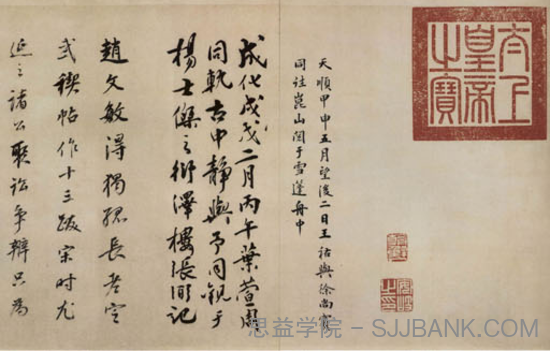 太上
皇帝
之寶
天順甲申五月望後二日王祐與徐尚賓
同詣崑山閱于雪蓬舟中
成化戊戌二月丙午葉萱周
同軌古中靜與予同觀于
楊士傑之衍澤樓張淵記
趙文敏得獨孤長老定
武禊帖作十三跋宋時尤
延之諸公聚訟爭辯只為
思益学院 - SJJBANK.COM